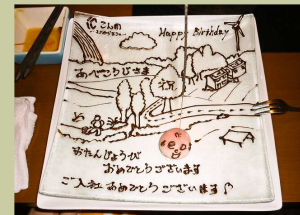 Happy Birthday
あべこうじさま
祝
おたんじょうび
おめでとうございます
ご入社 おめでとうございます